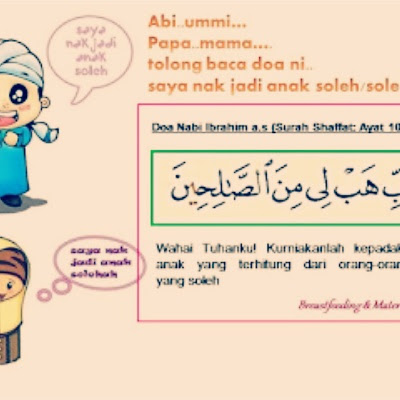 saya
nak jadi
anak
soleh
Abi..ummi...
Papa..mama....
tolong baca doa ni..
saya nak jadi anak soleh/sole
Doa Nabi Ibrahim a.s (Surah Shaffat: Ayat 10
بِّ هَبْ لِي مِنَ ٱلصَّـٰلِحِينَ
Wahai Tuhanku! Kurniakanlah kepadak
anak yang terhitung dari orang-oran
yang soleh
saya nak
jadi anak
solehah
Breastfeeding & Mater